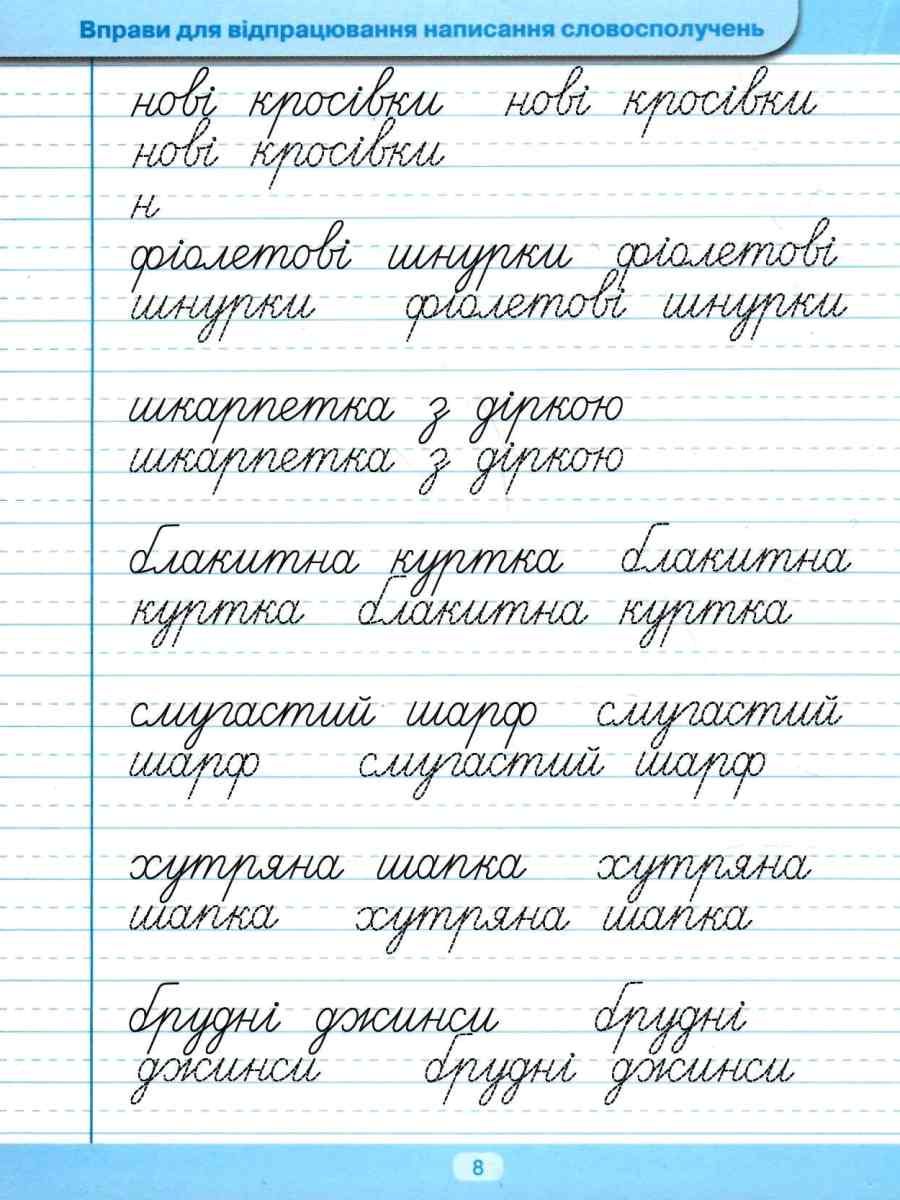 Вправи для відпрацювання написання словосполучень
нові кросівки нові кросівки
нові кросівки
н
фіолетові шнурки фіолетові
шнурки фіолетові шнурки
шкарпетка з діркою
шкарпетка з діркою
блакитна куртка блакитна
куртка блакитна куртка
смугастий шарф смугастий
шарф смугастий шарф
хутряна шапка хутряна
шапка хутряна шапка
брудні джинси брудні
джинси брудні джинси
8